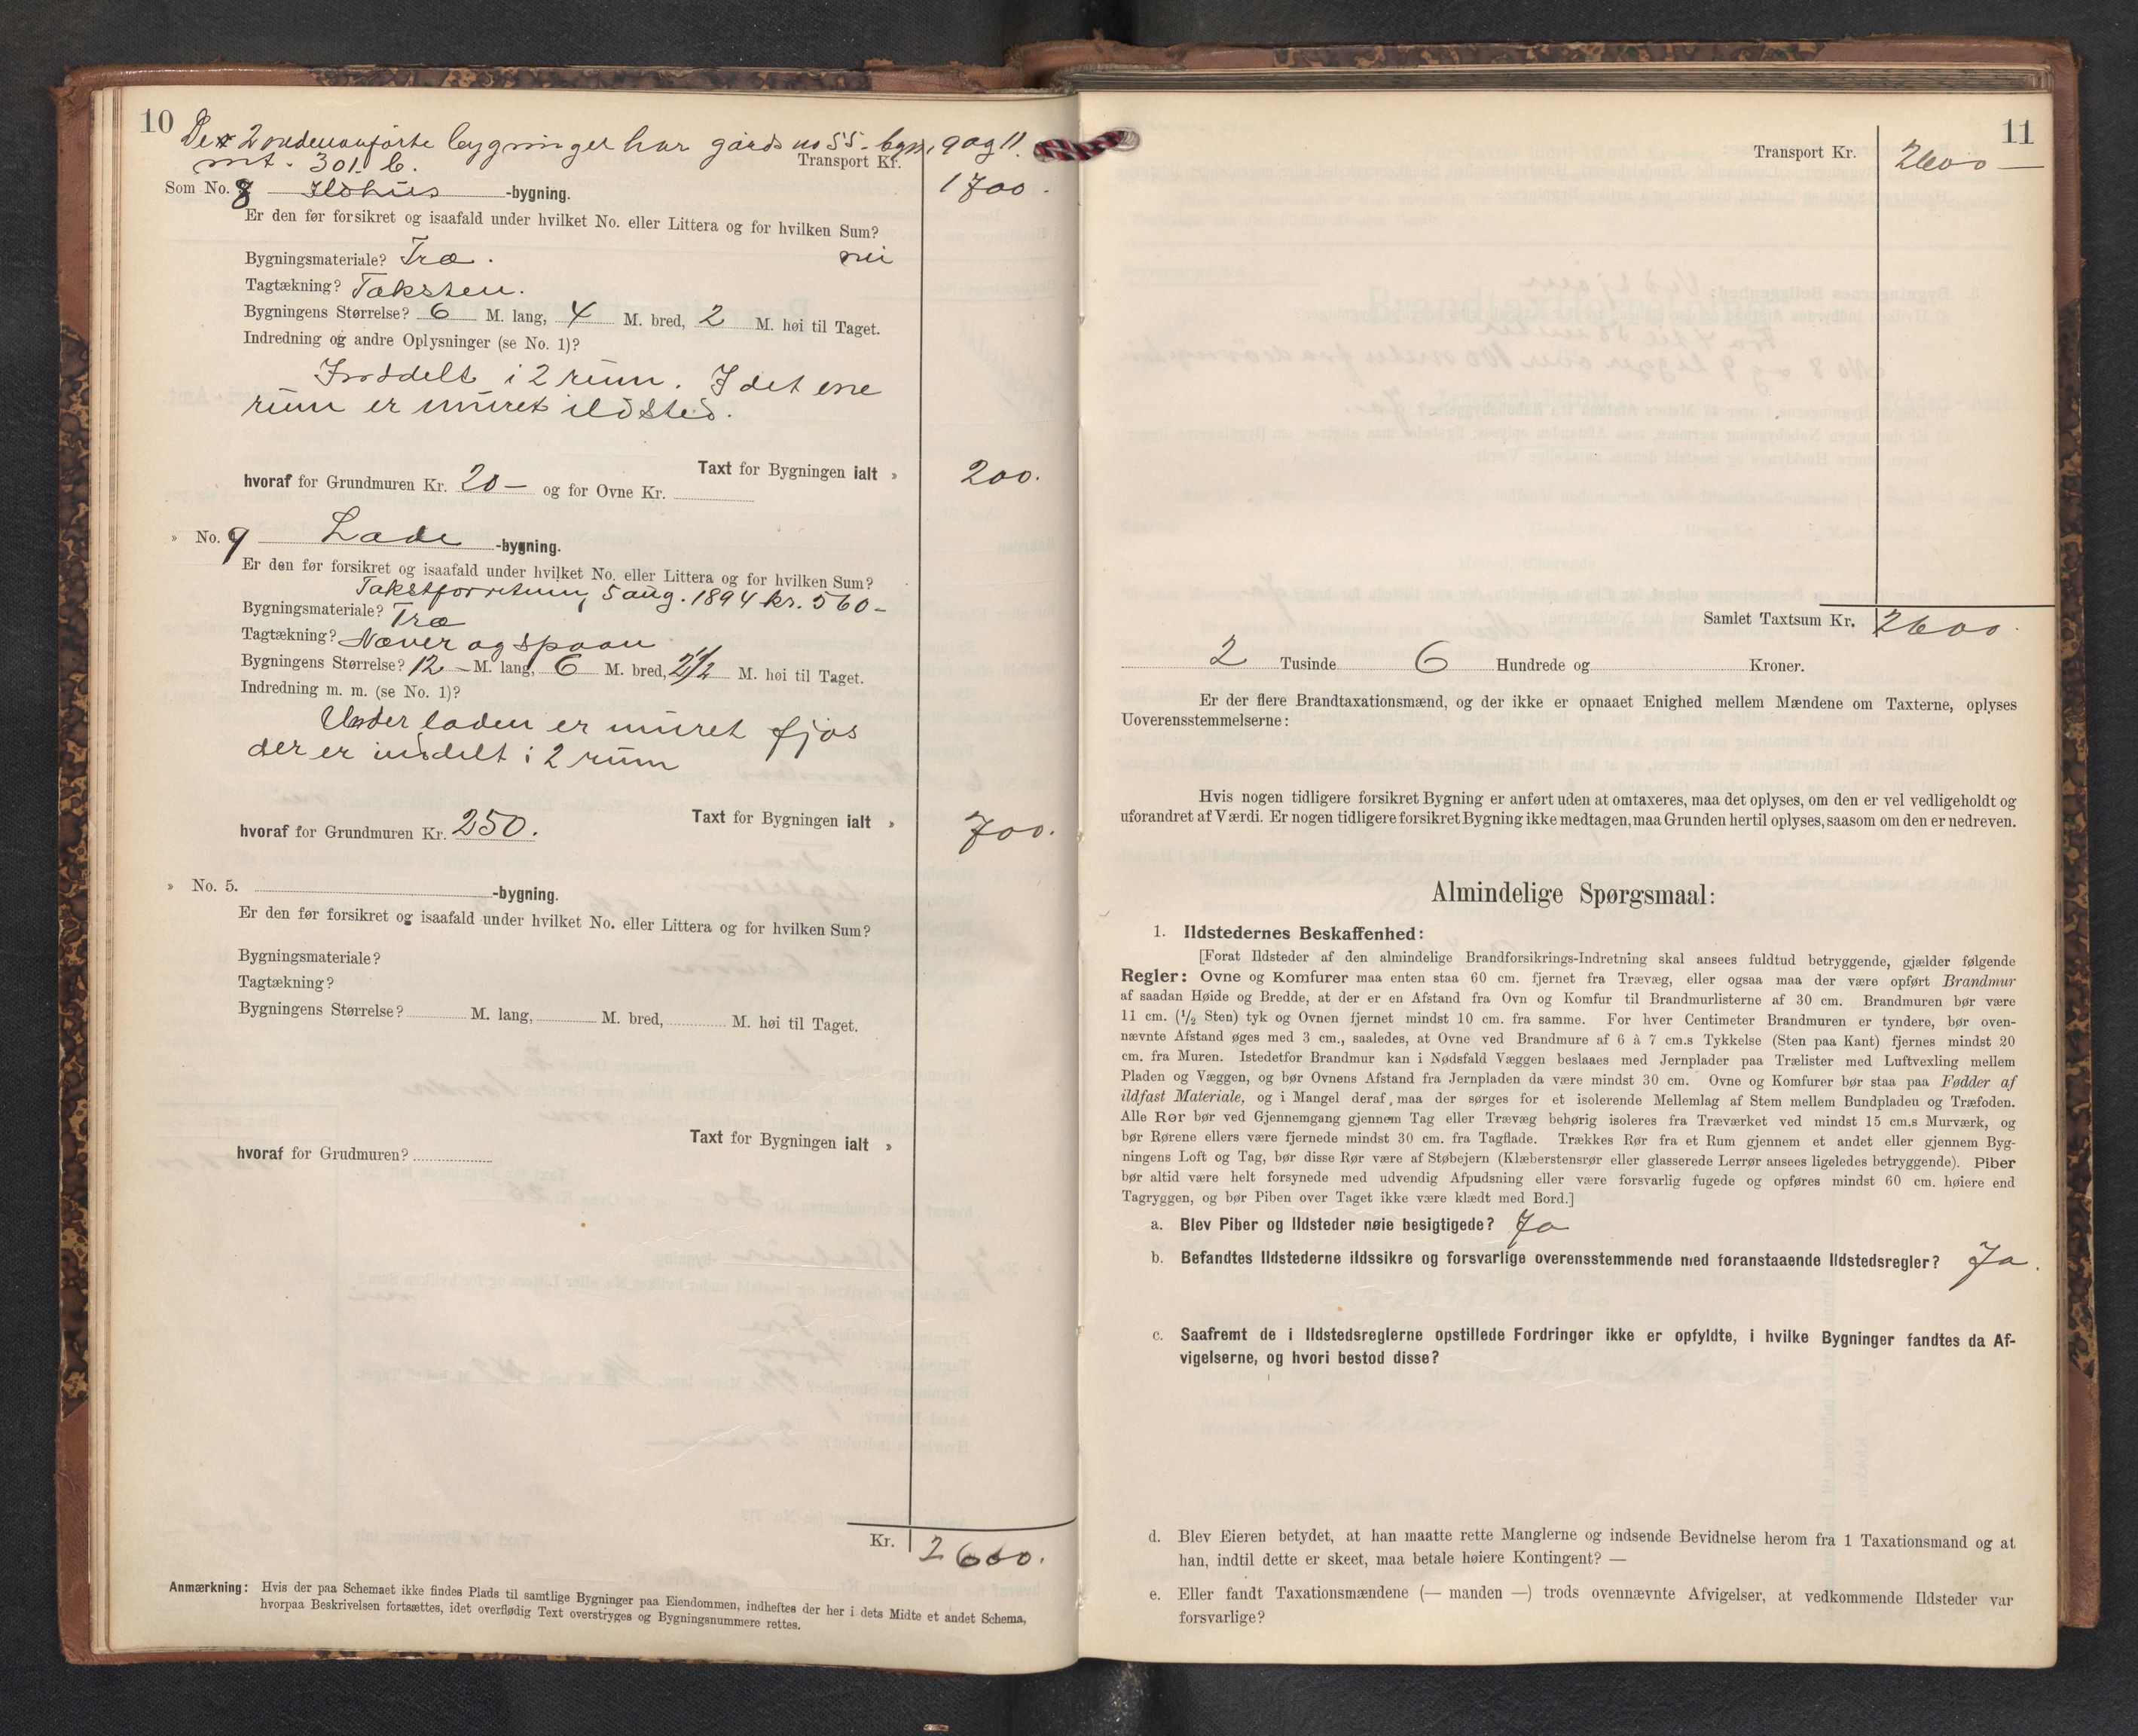 10
De 2 nedenanførte bygninger har gårds no 55 - bgn, 9 og 11.
mt. 301. b.
Transport Kr.
1700.
Som No. 8 Ildhus -bygning.
Er den før forsikret og isaafald under hvilket No. eller Littera og for hvilken Sum?
nei
Bygningsmateriale? Træ.
Tagtækning? Taksten.
Bygningens Størrelse? 6 M. lang, 4 M. bred, 2 M. høi til Taget.
Indredning og andre Oplysninger (se No. 1)?
Inddelt i 2 rum. I det ene
rum er muret ildsted.
Taxt for Bygningen ialt » 200.
hvoraf for Grundmuren Kr. 20 — og for Ovne Kr.
» No. 9 Lade -bygning.
Er den før forsikret og isaafald under hvilket No. eller Littera og for hvilken Sum?
Takstforretning 5 aug. 1894 kr. 560 -
Bygningsmateriale? Træ
Tagtækning? Næver og spaan
Bygningens Størrelse? 12 M. lang, 6 M. bred, 2 1/2 M. høi til Taget.
Indredning m. m. (se No. 1)?
Under laden er muret fjøs
der er inddelt i 2 rum
Taxt for Bygningen ialt » 700.
hvoraf for Grundmuren Kr. 250.
» No. 5. -bygning.
Er den før forsikret og isaafald under hvilket No. eller Littera og for hvilken Sum?
Bygningsmateriale?
Tagtækning?
Bygningens Størrelse? M. lang, M. bred, M. høi til Taget.
Taxt for Bygningen ialt »
hvoraf for Grudmuren?
Kr. 2600.
Anmærkning: Hvis der paa Schemaet ikke findes Plads til samtlige Bygninger paa Eiendommen, indheftes der her i dets Midte et andet Schema,
hvorpaa Beskrivelsen fortsættes, idet overflødig Text overstryges og Bygningsnummere rettes.
11
Transport Kr. 2600 —
Samlet Taxtsum Kr. 2600.
2 Tusinde 6 Hundrede og Kroner.
Er der flere Brandtaxationsmænd, og der ikke er opnaaet Enighed mellem Mændene om Taxterne, oplyses
Uoverensstemmelserne:
Hvis nogen tidligere forsikret Bygning er anført uden at omtaxeres, maa det oplyses, om den er vel vedligeholdt og
uforandret af Værdi. Er nogen tidligere forsikret Bygning ikke medtagen, maa Grunden hertil oplyses, saasom om den er nedreven.
Almindelige Spørgsmaal:
1. Ildstedernes Beskaffenhed:
[Forat Ildsteder af den almindelige Brandforsikrings-Indretning skal ansees fuldtud betryggende, gjælder følgende
Regler: Ovne og Komfurer maa enten staa 60 cm. fjernet fra Trævæg, eller ogsaa maa der være opført Brandmur
af saadan Høide og Bredde, at der er en Afstand fra Ovn og Komfur til Brandmurlisterne af 30 cm. Brandmuren bør være
11 cm. (½ Sten) tyk og Ovnen fjernet mindst 10 cm. fra samme. For hver Centimeter Brandmuren er tyndere, bør oven-
nævnte Afstand øges med 3 cm., saaledes, at Ovne ved Brandmure af 6 à 7 cm.s Tykkelse (Sten paa Kant) fjernes mindst 20
cm. fra Muren. Istedetfor Brandmur kan i Nødsfald Væggen beslaaes med Jernplader paa Trælister med Luftvexling mellem
Pladen og Væggen, og bør Ovnens Afstand fra Jernpladen da være mindst 30 cm. Ovne og Komfurer bør staa paa Fødder af
ildfast Materiale, og i Mangel deraf maa der sørges for et isolerende Mellemlag af Stem mellem Bundpladeu og Træfoden.
Alle Rør bør ved Gjennemgang gjennem Tag eller Trævæg behørig isoleres fra Træværket ved mindst 15 cm.s Murværk, og
bør Rørene ellers være fjernede mindst 30 cm. fra Tagflade. Trækkes Rør fra et Rum gjennem et andet eller gjennem Byg-
ningens Loft og Tag, bør disse Rør være af Støbejern (Klæberstensrør eller glasserede Lerrør ansees ligeledes betryggende). Piber
bør altid være helt forsynede med udvendig Afpudsning eller være forsvarlig fugede og opføres mindst 60 cm. høiere end
Tagryggen, og bør Piben over Taget ikke være klædt med Bord.]
a. Blev Piber og Ildsteder nøie besigtigede? Ja
b. Befandtes Ildstederne ildssikre og forsvarlige overensstemmende med foranstaaende Ildstedsregler? Ja.
c. Saafremt de i Ildstedsreglerne opstillede Fordringer ikke er opfyldte, i hvilke Bygninger fandtes da Af-
vigelserne, og hvori bestod disse?
d. Blev Eieren betydet, at han maatte rette Manglerne og indsende Bevidnelse herom fra 1 Taxationsmand og at
han, indtil dette er skeet, maa betale høiere Kontingent? —
e. Eller fandt Taxationsmændene (— manden —) trods ovennævnte Afvigelser, at vedkommende Ildsteder var
forsvarlige?